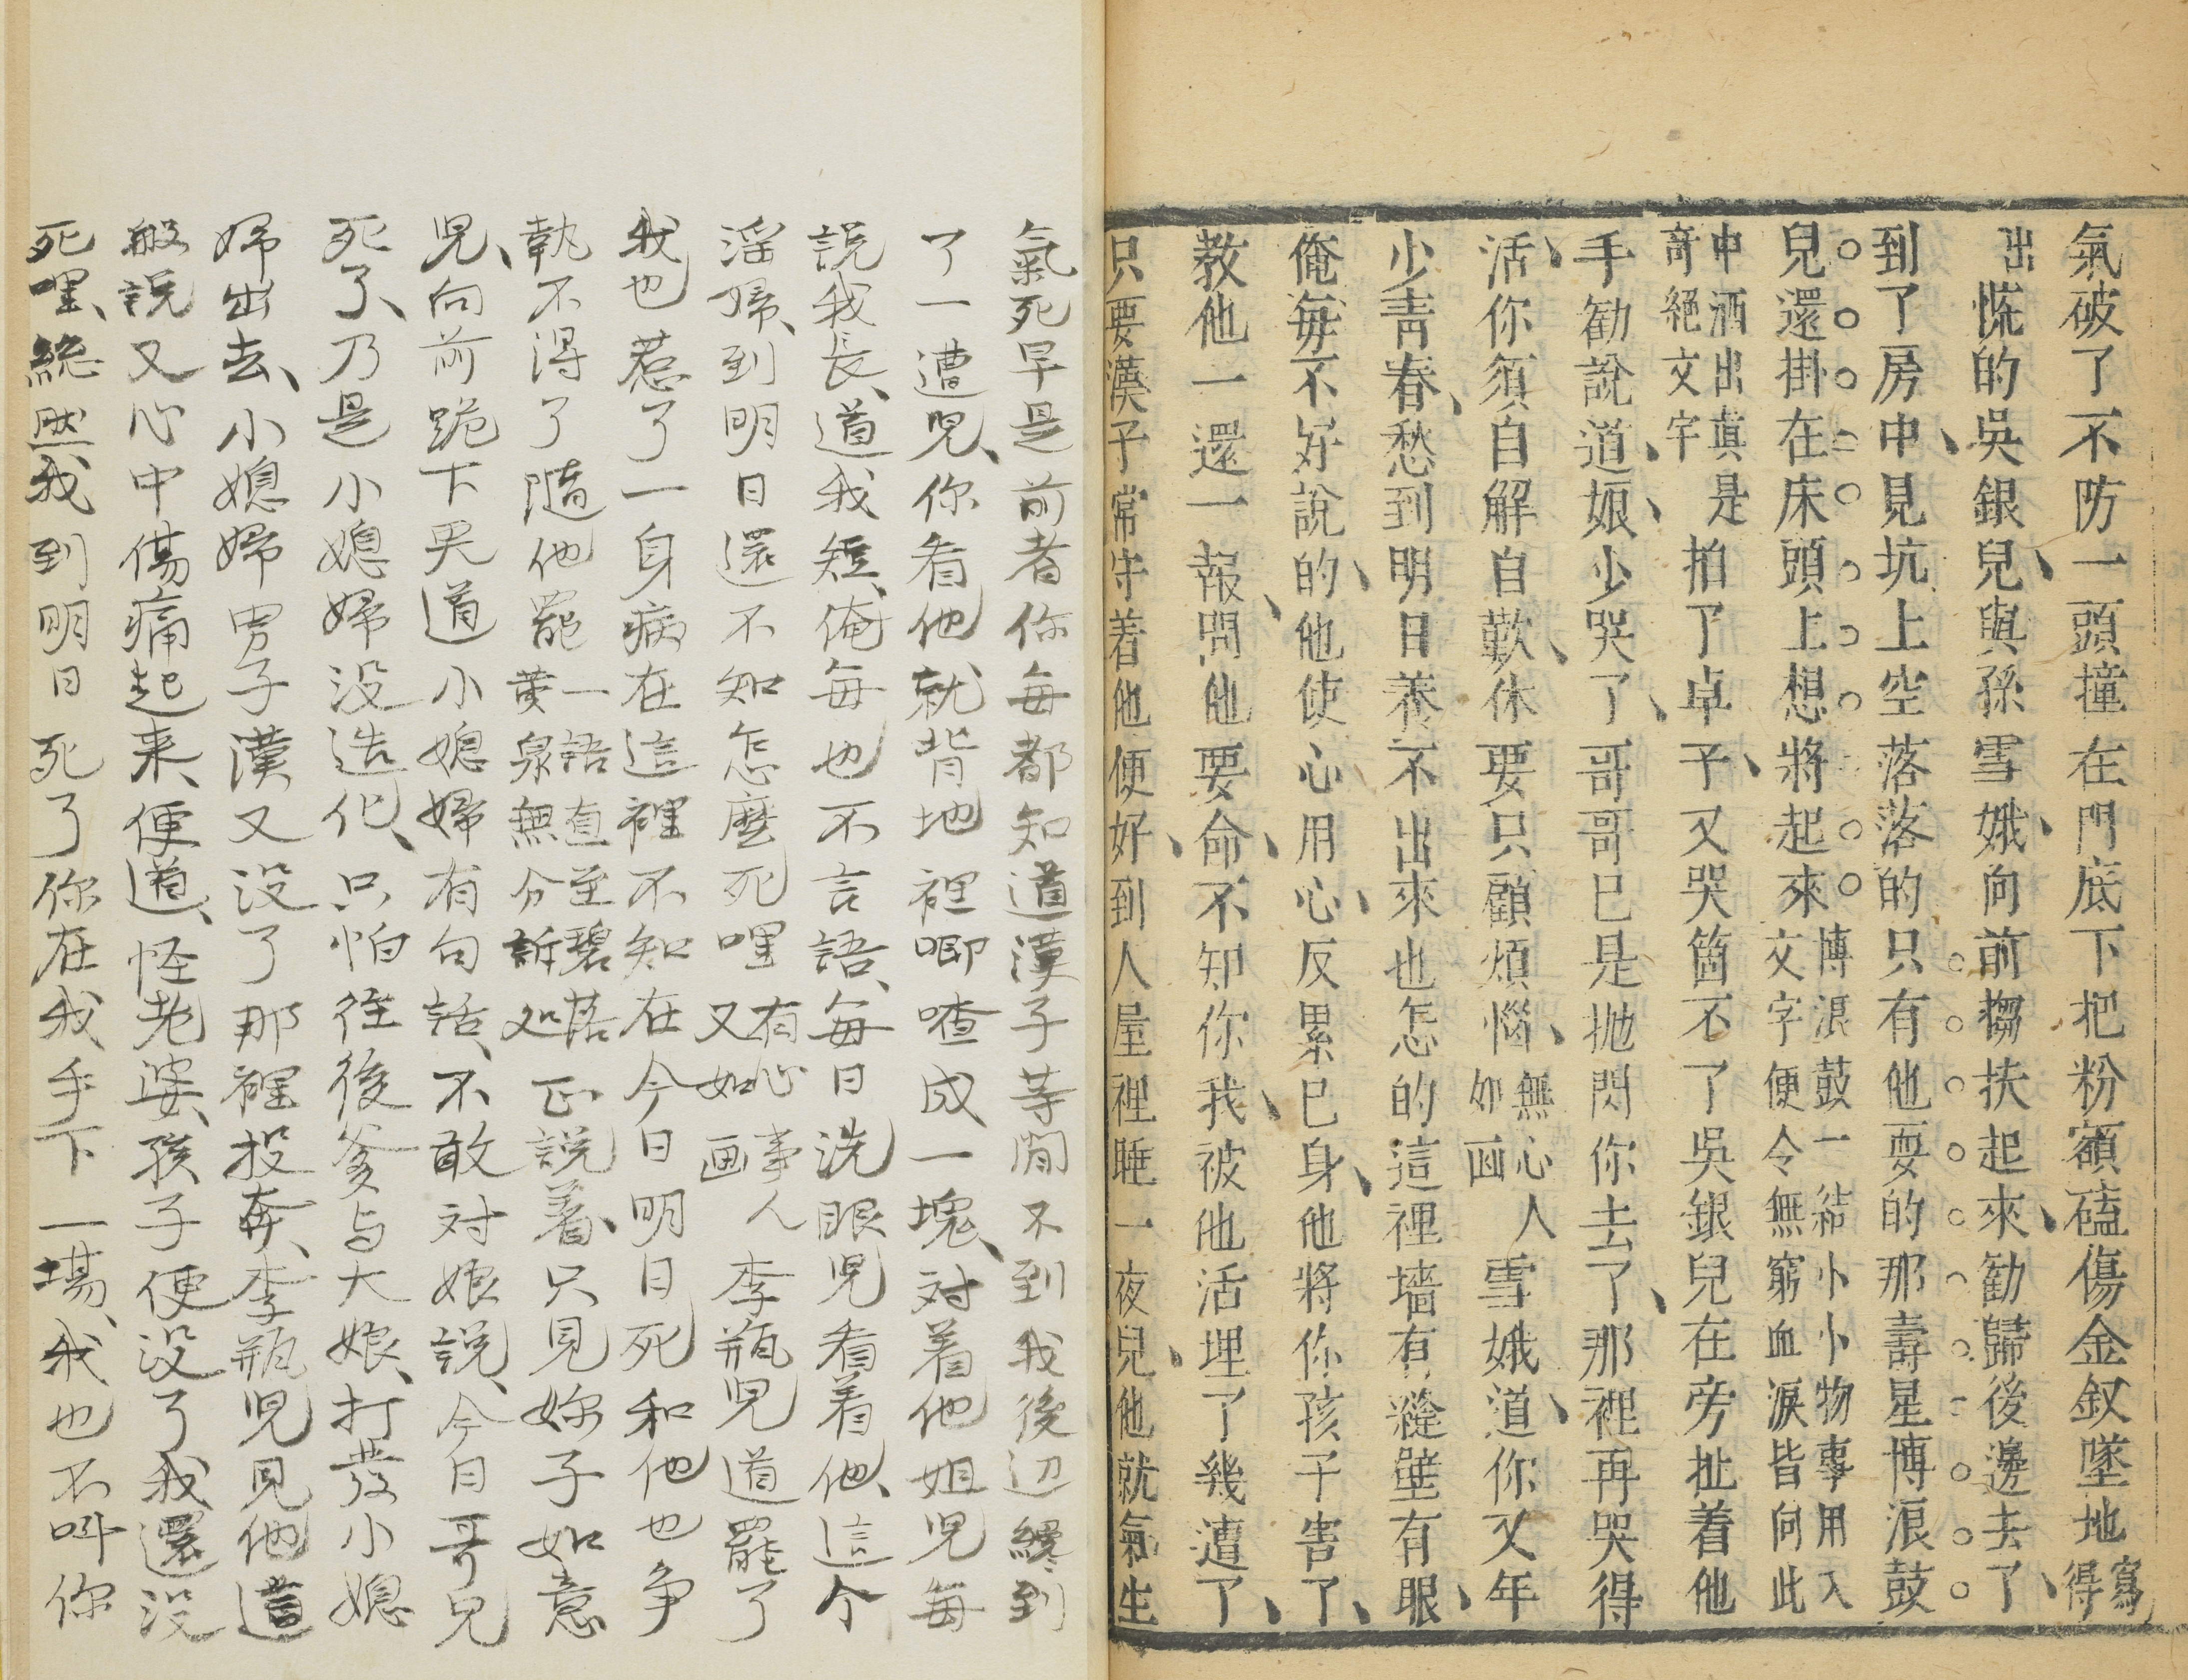 氣破了不防一頭撞在門底下把粉額磕傷金釵墜地寫得
出慌的吳銀兒與孫雪娥向前搊扶起來勸歸後邊去了
到了房中見炕上空落落的只有他耍的那壽星博浪鼓
兒還掛在床頭上想將起來博浪鼓一結小小物事用入文字便令無窮血淚皆向此
中洒出真是奇絕文字拍了卓子又哭箇不了吳銀兒在旁扯着他
手勸說道娘少哭了哥哥已是抛閃你去了那裡再哭得
活你須自解自歎休要只顧煩惱無心人如画雪娥道你又年
少青春愁到明日養不出來也怎的這裡墻有縫壁有眼
俺每不好說的他使心用心反累已身他將你孩子害了
教他一還一報問他要命不知你我被他活埋了幾遭了
只要漢子常守着他便好到人屋裡睡一夜兒他就氣生
氣死早是前者你每都知道漢子等閒不到我後边纔到
了一遭兒你看他就背地裡唧喳成一塊对着他姐兒每
説我長道我短俺每也不言語每日洗眼兒看着他這个
淫婦到明日還不知怎麼死哩有心事人又如画李瓶兒道罷了
我也惹了一身病在這裡不知在今日明日死和他也争
執不得了隨他罷一語直至碧落黄泉無分訴処正説着只見妳子如意
兒向前跪下哭道小媳婦有句話不敢对娘説今日哥兒
死了乃是小媳婦没造化只怕往後爹与大娘打發小媳
婦出去小媳婦男子漢又没了那裡投奔李瓶兒見他這
般説又心中傷痛起来便道怪老婆孩子便没了我還没
死哩縂然我到明日死了你在我手下一塲我也不叫你